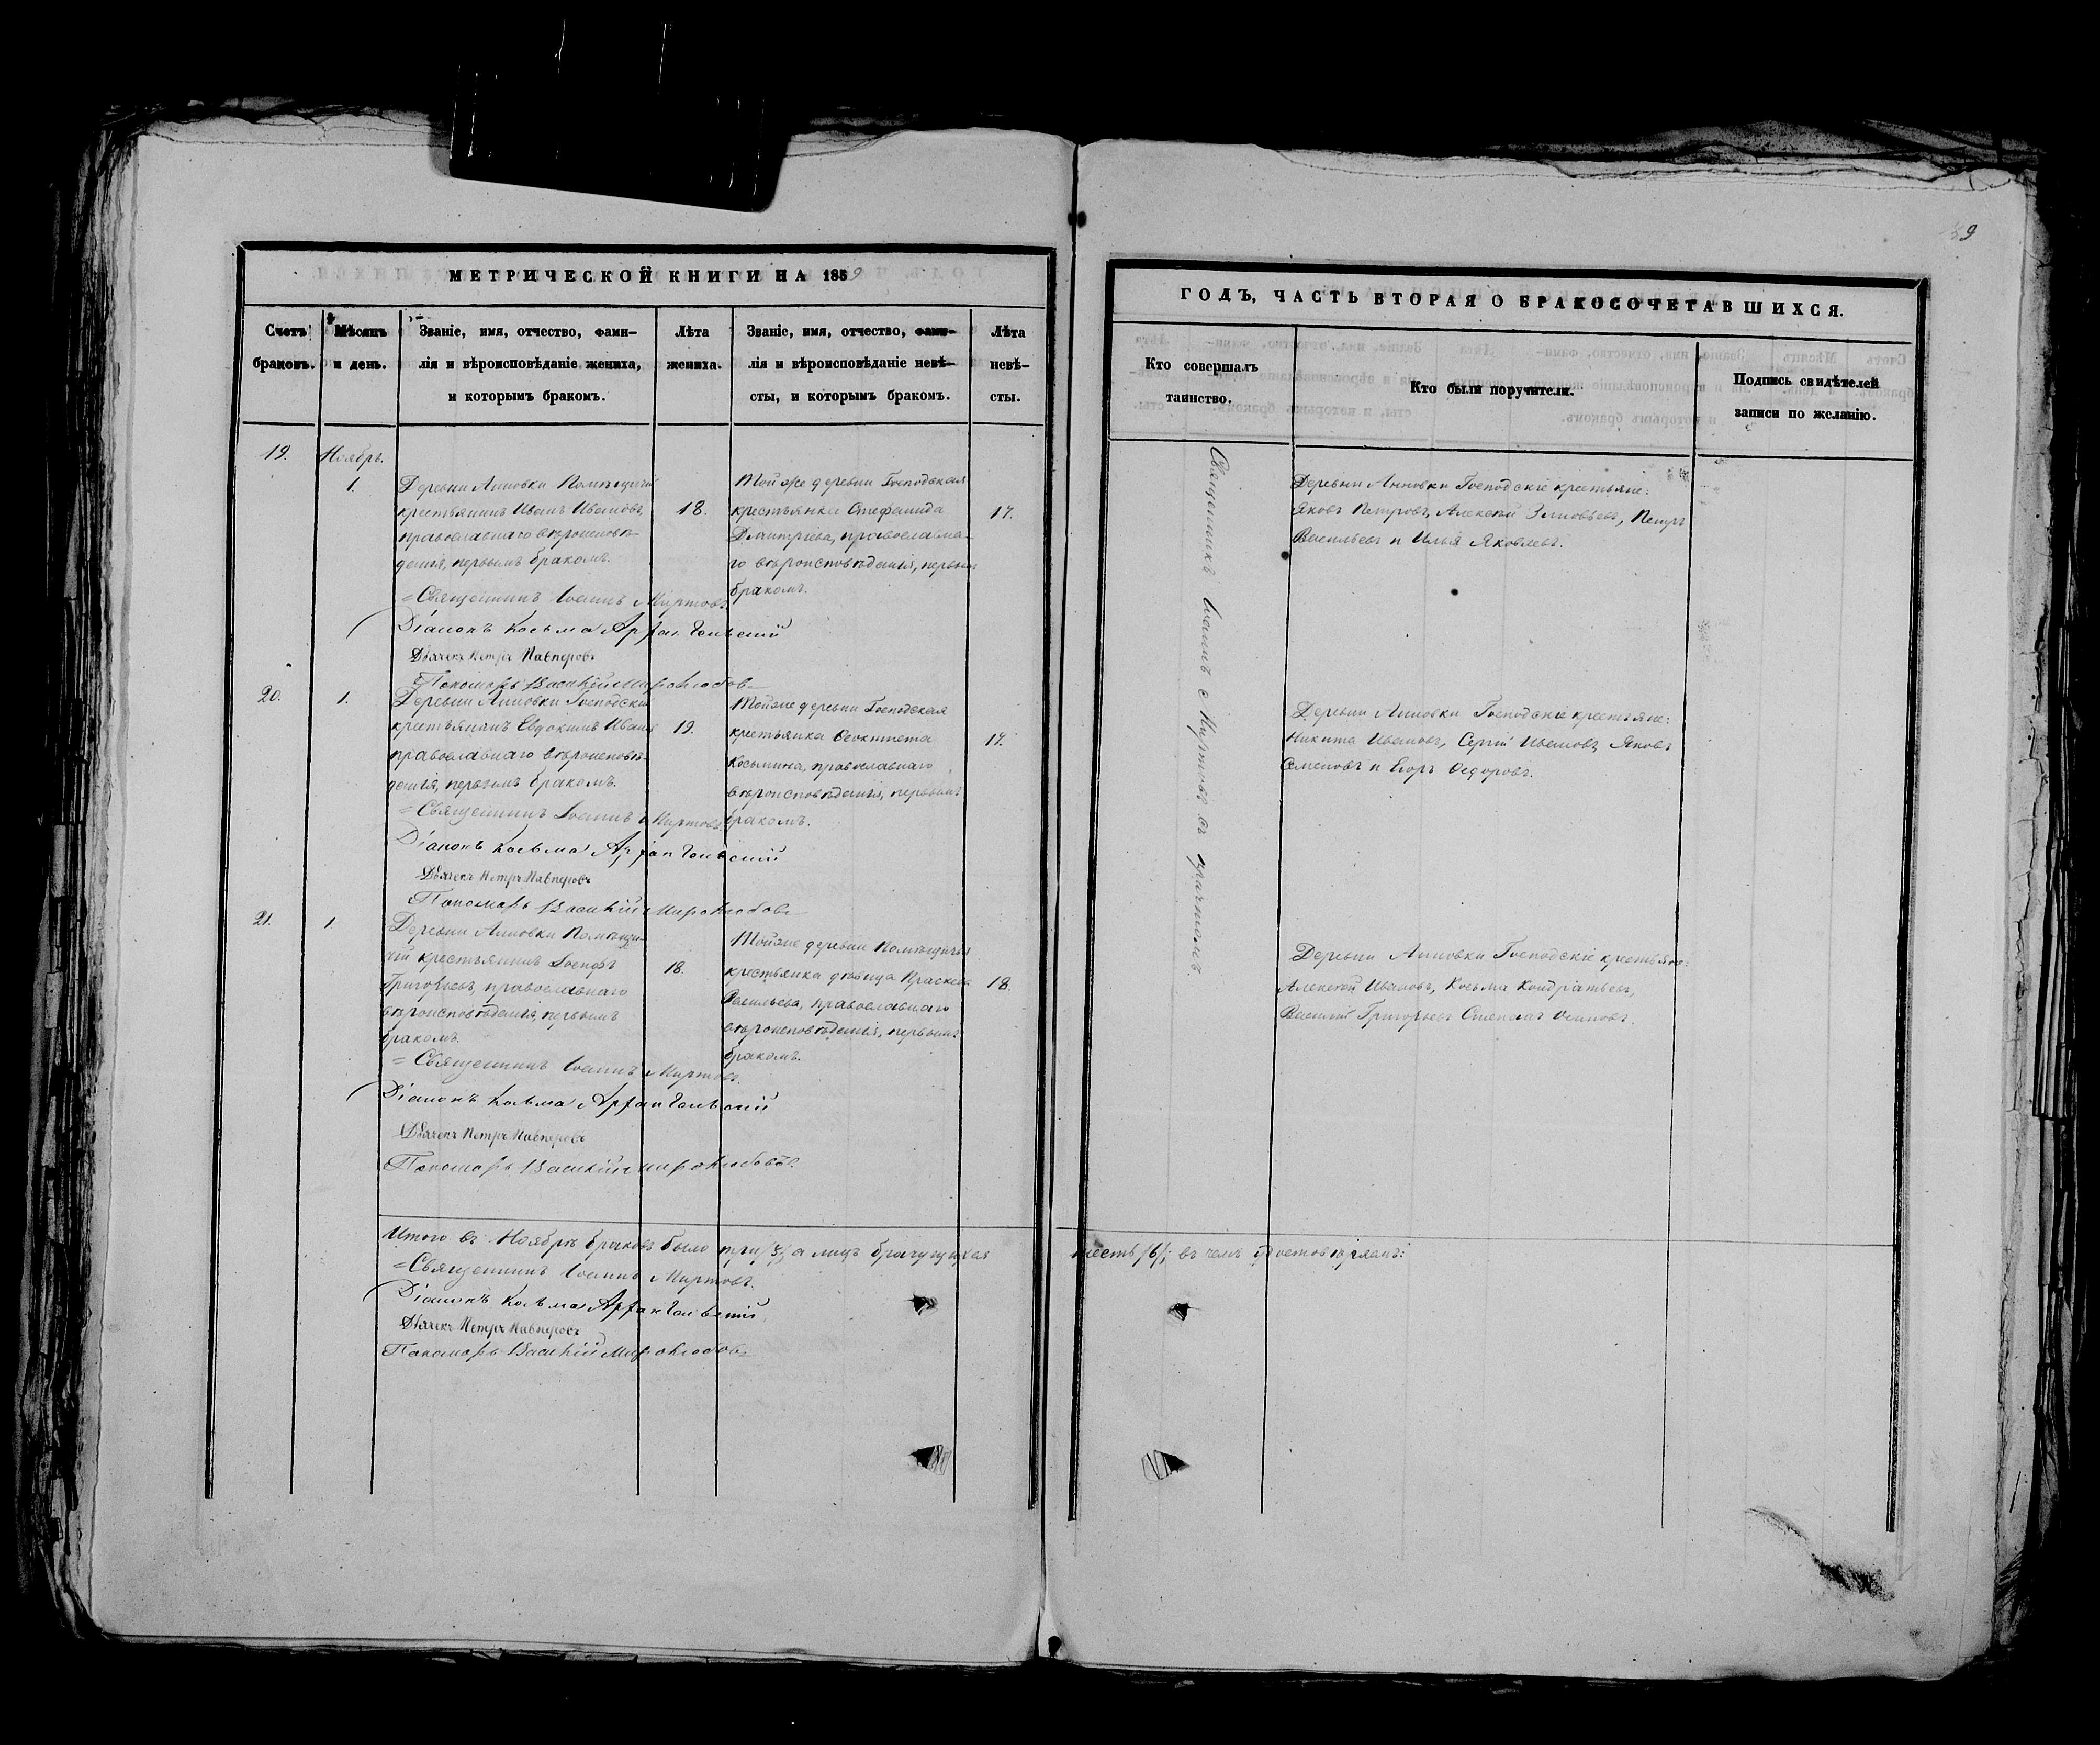 МЕТРИЧЕСКОЙ КНИГИ НА 1859
Счетъ браковъ.
Мѣсяцъ и день.
Званіе, имя, отчество, фами-
лія и вѣроисповѣданіе жениха,
и которымъ бракомъ.
Лѣта
жениха.
Званіе, имя, отчество, фами-
лія и вѣроисповѣданіе невѣ-
сты, и которымъ бракомъ.
Лѣта
невѣ-
сты.
19.
Ноябрь.
1.
Деревни Анновки Помѣщичій
крестьянинъ Иванъ Ивановъ,
православнаго вѣроисповѣ-
данія, первымъ бракомъ.
18.
Той же деревни Господская
крестьянка Стефанида
Дмитріева, православна-
го вѣроисповѣданія, первымъ
бракомъ.
17.
Священникъ Іоаннъ Миртовъ.
Діаконъ Косьма Архангельскій
Дьячекъ Петръ
Пономарь Василій Миролюбовъ
20.
1.
Деревни Анновки Господскій
крестьянинъ Евдокимъ Ивановъ
православнаго вѣроисповѣ-
данія, первымъ бракомъ.
19.
Той же деревни Господская
крестьянка Ѳеоктиста
Косьмина, православнаго
вѣроисповѣданія, первымъ
бракомъ.
17.
Священникъ Іоаннъ Миртовъ.
Діаконъ Косьма Архангельскій
Дьячекъ Петръ
Пономарь Василій Миролюбовъ
21.
1.
Деревни Анновки Помѣщи-
чій крестьянинъ Іосифъ
Григорьевъ, православнаго
вѣроисповѣданія, первымъ
бракомъ.
18.
Той же деревни Помѣщичья
крестьянка дѣвица Праскева
Васильева, православнаго
вѣроисповѣданія, первымъ
бракомъ.
18.
Священникъ Іоаннъ Миртовъ.
Діаконъ Косьма Архангельскій
Дьячекъ Петръ
Пономарь Василій Миролюбовъ.
Итого въ Ноябрѣ браковъ было три /3/ а лицъ брачущихся
Священникъ Іоаннъ Миртовъ.
Діаконъ Косьма Архангельскій
Дьячекъ Петръ
Пономарь Василій Миролюбовъ
ГОДЪ, ЧАСТЬ ВТОРАЯ О БРАКОСОЧЕТАВШИХСЯ.
Кто совершалъ
таинство.
Кто были поручители.
Подпись свидѣтелей
записи по желанію.
Священникъ Іоаннъ Миртовъ съ причтомъ.
Деревни Анновки Господскіе крестьяне:
Яковъ Петровъ, Алексѣй Зиновьевъ, Петръ
Васильевъ и Илья Яковлевъ.
Деревни Анновки Господскіе крестьяне:
Никита Ивановъ, Сергій Ивановъ, Яковъ
Семеновъ и Егоръ Ѳедоровъ.
Деревни Анновки Господскіе крестьяне:
Алексѣй Ивановъ, Косьма Кондратьевъ,
Василій Григорьевъ Степанъ Осиповъ.
шесть /6/; въ чемъ и удостовѣряемъ: